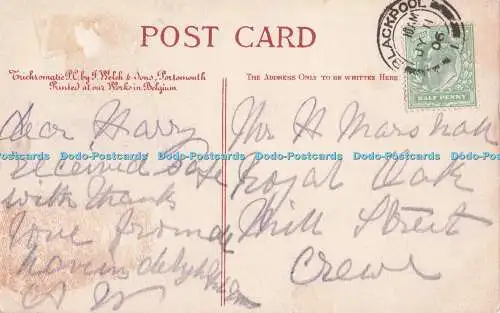 POST CARD
Trichromatic P.C. by J. Welch & Sons, Portsmouth
Printed at our Works in Belgium
THE ADDRESS ONLY TO BE WRITTEN HERE
BLACKPOOL
06
HALF PENNY
dear Harry
received safe
with thanks
love from
having delightful
Mr H Marshall
Royal Oak
Mill Street
Crewe
Dodo-Postcards Dodo-Postcards Dodo-Postcards Dodo-Postcards